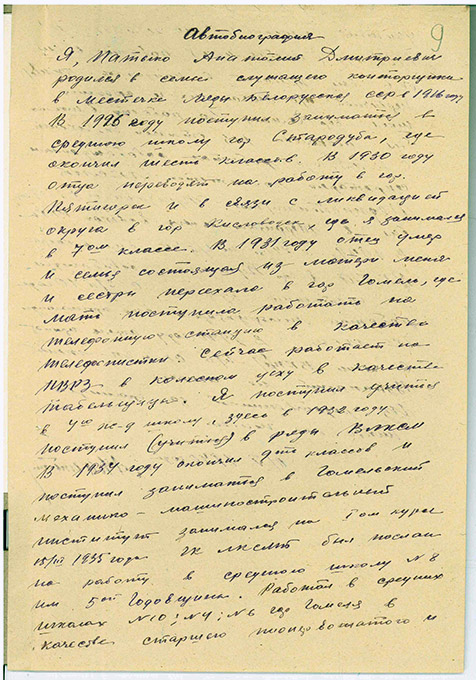 9
Автобиография
Я, Матейко Анатолий Дмитриевич
родился в семье служащего конторщика
в местечке Ляды Белорусская сср в 1916 году
В 1926 году поступил заниматся в
среднюю школу гор Стародуба, где
окончил шесть классов. В 1930 году
отца переводят на работу в гор.
Пятигорск и в связи с ликвидацией
округа в гор Кисловодск где я занимался
в 7ом классе. В 1931 году отец умер
и семья состоящая из матери меня
и сестры переехала в гор Гомель, где
мать поступила работать на
телефонную станцию в качестве
телефонистки сейчас работает на
ПВРЗ в колесном цеху в качестве
табельщицы. Я поступил учится
в школу здесь в 1932 году
поступил (учится) в ряды ВЛКСМ
В 1934 году окончил классов и
поступил заниматся в Гомельский
механико-машиностроительный
институт занимался на Iом курсе
15/III 1935 года ГК ЛКСМБ был послан
на работу в среднюю школу №8
им 5ой Годовщины. Работал в средних
школах №10; №4; №6 гор Гомеля в
качестве старшего пионервожатого и